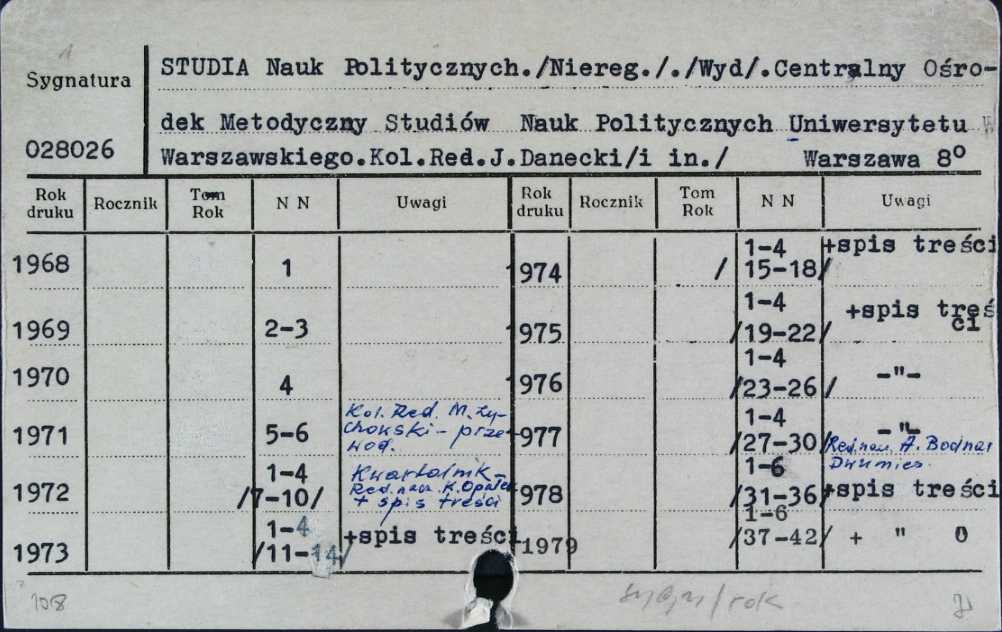 Sygnatura
STUDIA Nauk Politycznych./Niereg./ ./Wyd/.Centralny Ośro-
dek Metodyczny Studiów Nauk Politycznych Uniwersytetu W
028026
Warszawskiego.Kol.Red.J.Danecki/i in./ Warszawa 8°
Rok druku Rocznik Tom Rok N N Uwagi Rok druku Rocznik Tom Rok N N Uwagi
1968 1
1969 2-3
1970 4
1971 5-6 Kol. Red. M. Ży-
chowski - prze-
wod.
1972 1-4 /7-10/ Kwartalnik -
Red. nacz. K. Opałek
+ spis treści
1973 1-4 /11-14/ +spis treści
1974 1-4 /15-18/ +spis treści
1975 1-4 /19-22/ +spis treś
ci
1976 1-4 /23-26/ -"-
1977 1-4 /27-30/ -"-
Red. nacz. A. Bodnar
Dwumies.
1978 1-6 /31-36/ +spis treści
1979 1-6 /37-42/ + " 0
108